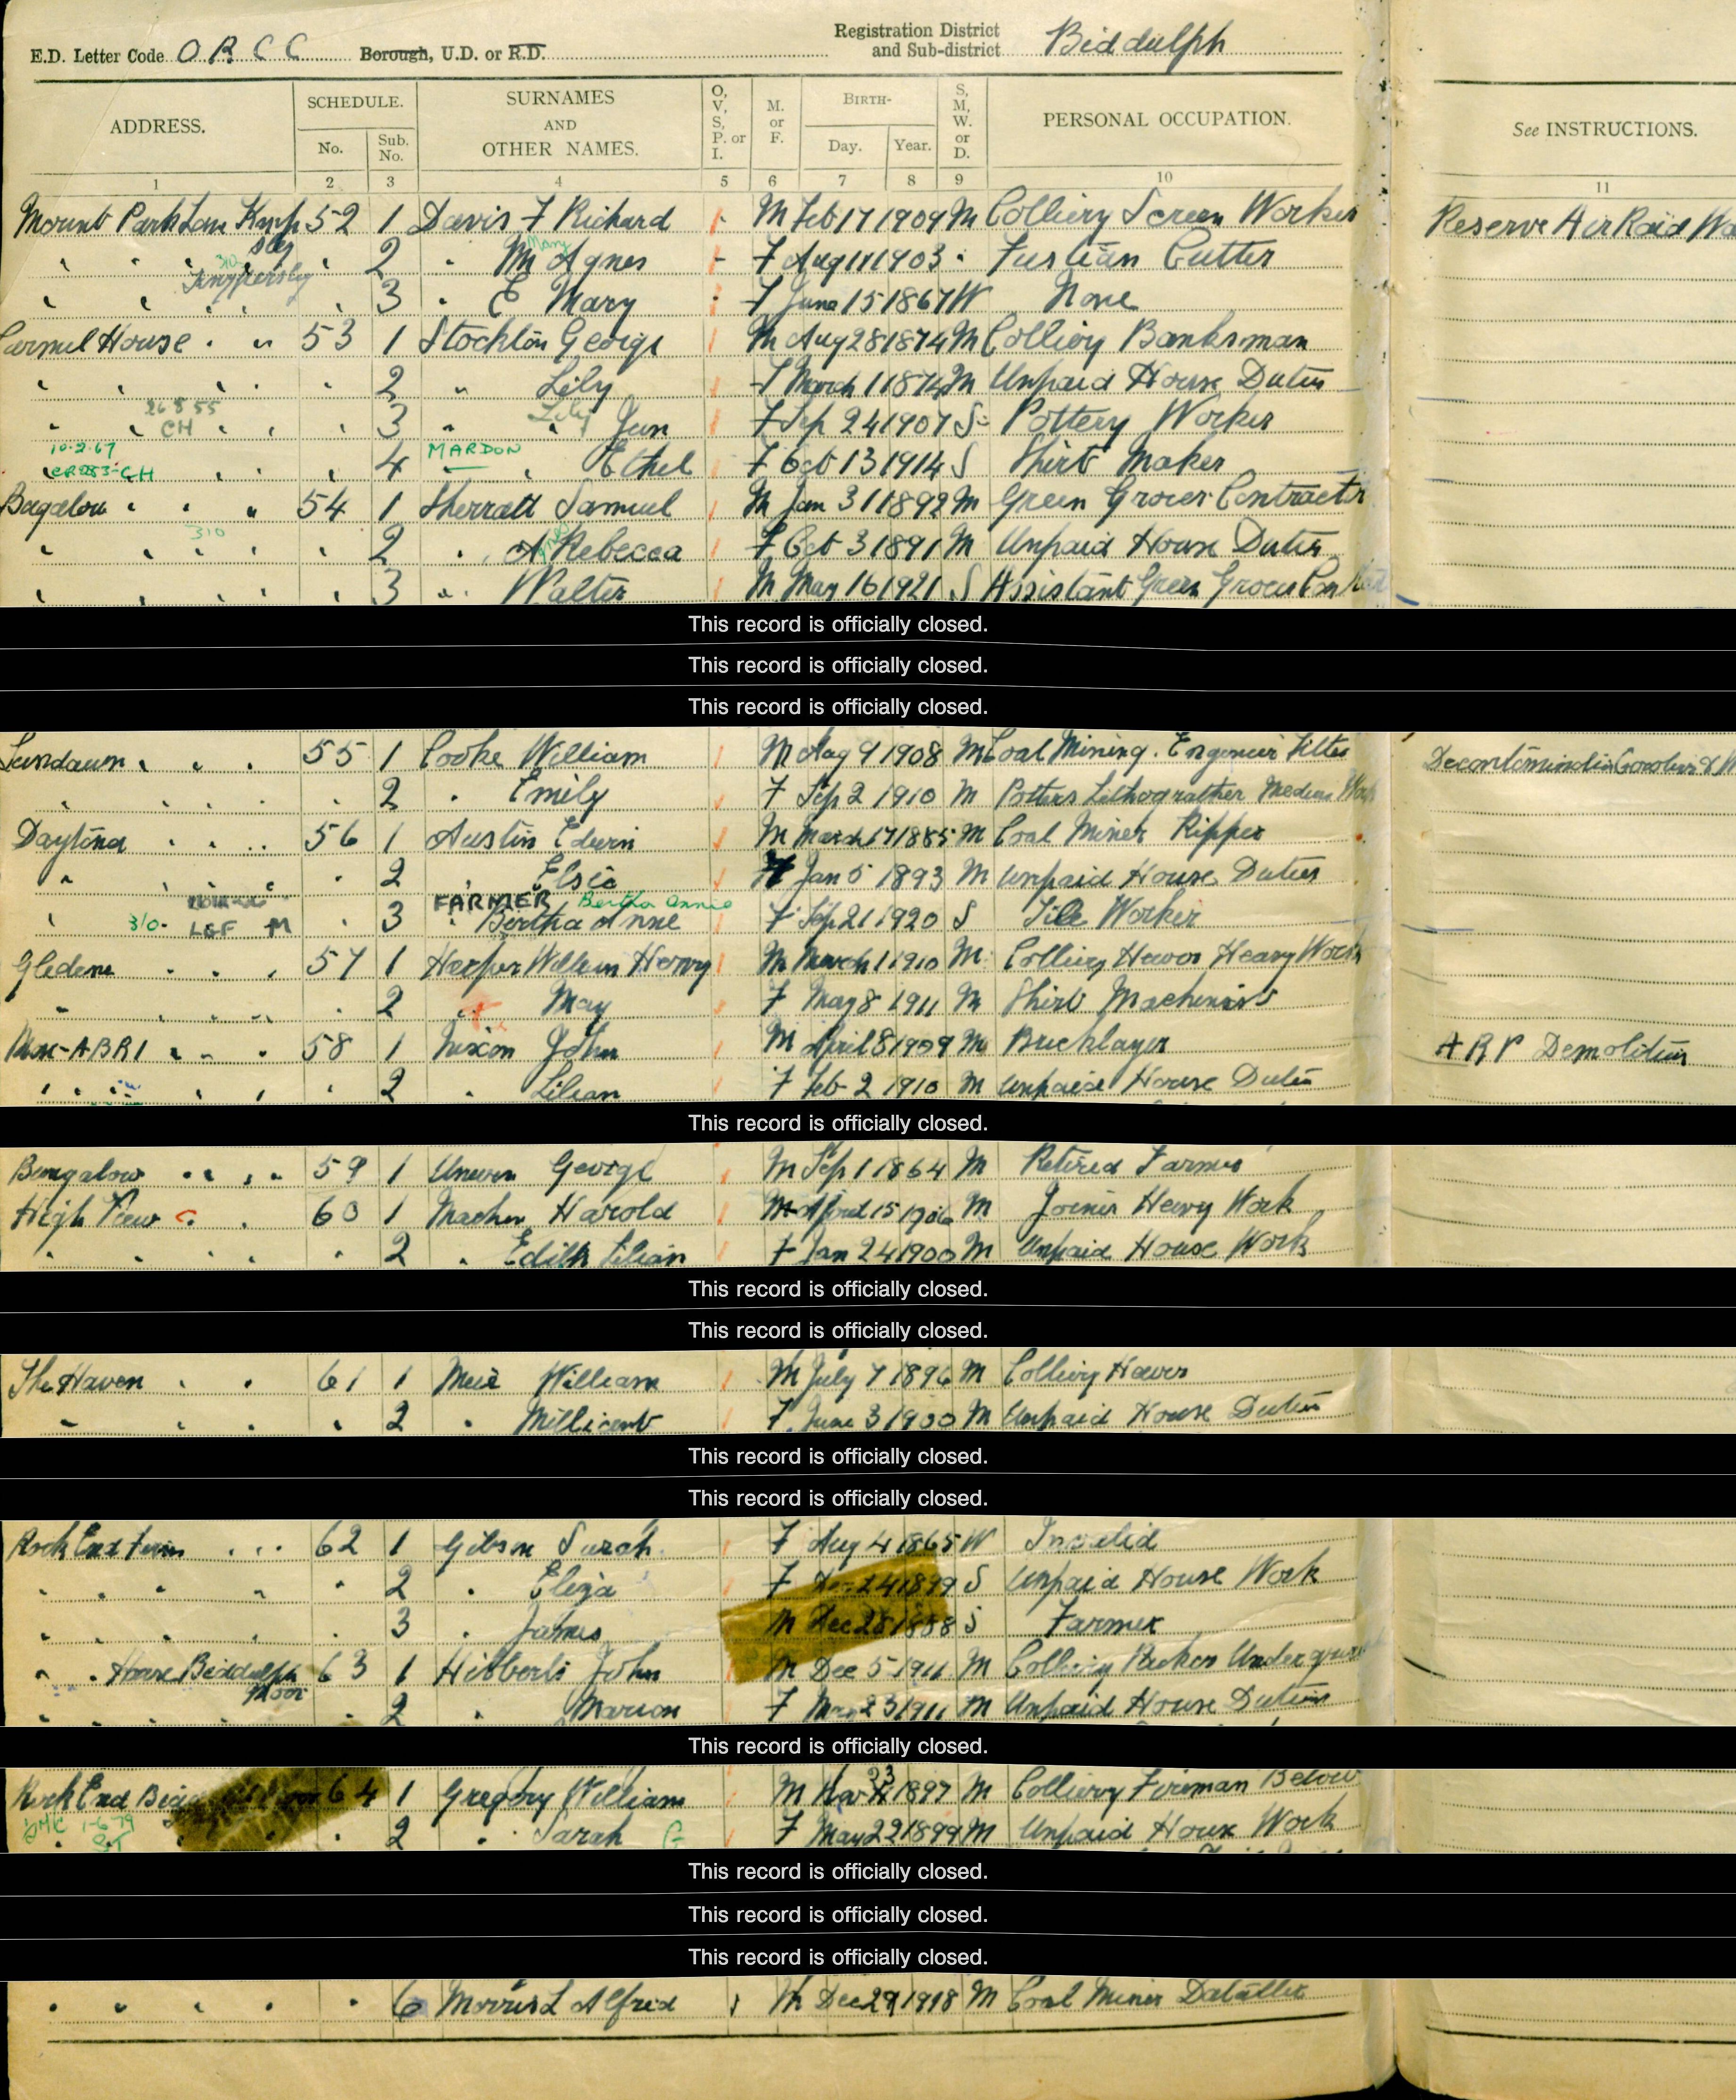 E.D. Letter Code O R C C Borough, U.D. or R.D. Registration District and Sub-district Biddulph
ADDRESS. SCHEDULE. No. Sub. No. SURNAMES AND OTHER NAMES. O, V, S, P. or I. M. or F. BIRTH- Day. Year. S, M, W. or D. PERSONAL OCCUPATION. See INSTRUCTIONS.
1 2 3 4 5 6 7 8 9 10 11
Mount Park Lane 52 1 Davis F Richard M Feb 17 1909 M Colliery Screen Worker Reserve Air Raid
Mary
2 " M Agnes F Aug 11 1903 " Fustian Cutter
310
Knypersley
3 " E Mary F June 15 1867 W None
Carmel House " " 53 1 Stockton George M Aug 28 1874 M Colliery Banksman
2 " Lily F March 1 1874 M Unpaid House Duties
26 8 55 Lily
CH 3 " " Jun F Sep 24 1907 S Pottery Worker
10·2·67 MARDON
CR283 CH 4 " Ethel F Oct 13 1914 S Shirt Maker
54 1 Sherratt Samuel M Jan 31 1892 M Green Grocer Contractor
310
2 " A Rebecca F Oct 3 1891 M Unpaid House Duties
3 " Walter M May 16 1921 S Assistant Green Grocer
This record is officially closed.
This record is officially closed.
This record is officially closed.
55 1 Cooke William M Aug 9 1908 M Coal Mining Engineer Fitter
2 " Emily F Sep 2 1910 M Potters Lithographer
Daytona 56 1 Austin Edwin M March 17 1885 M Coal Miner Ripper
2 " Elsie F Jan 5 1893 M Unpaid House Duties
FARMER Bertha Annie
310 L&F M 3 " Bertha Anne F Sep 21 1920 S Tile Worker
57 1 Harper William Henry M March 1 1910 M Colliery Hewer Heavy Work
2 " May F May 8 1911 M Shirt Machinist
58 1 Nixon John M April 8 1909 M Bricklayer A R P Demolition
2 " Lilian F Feb 2 1910 M Unpaid House Duties
This record is officially closed.
Bungalow 59 1 George M Sep 1 1864 M Retired Farmer
High View 60 1 Harold M April 15 1906 M Joiner Heavy Work
2 " Edith Lilian F Jan 24 1900 M Unpaid House Work
This record is officially closed.
This record is officially closed.
The Haven 61 1 Meir William M July 7 1896 M Colliery Hewer
2 " Millicent F June 3 1900 M Unpaid House Duties
This record is officially closed.
This record is officially closed.
Rock End Farm 62 1 Gibson Sarah F Aug 4 1865 W Invalid
2 " Eliza F Dec 24 1899 S Unpaid House Work
3 " James M Dec 28 1888 S Farmer
" " House Biddulph 63 1 Hibberts John M Dec 5 1911 M Colliery Packer Underground
Moor
2 " Marion F 23 1911 M Unpaid House Duties
This record is officially closed.
23
Rock End 64 1 Gregory William M 1897 M Colliery Fireman Below
1-6-79 2 " Sarah F May 22 1899 M Unpaid House Work
This record is officially closed.
This record is officially closed.
This record is officially closed.
6 Morris L Alfred M Dec 29 1918 M Coal Miner Dataller